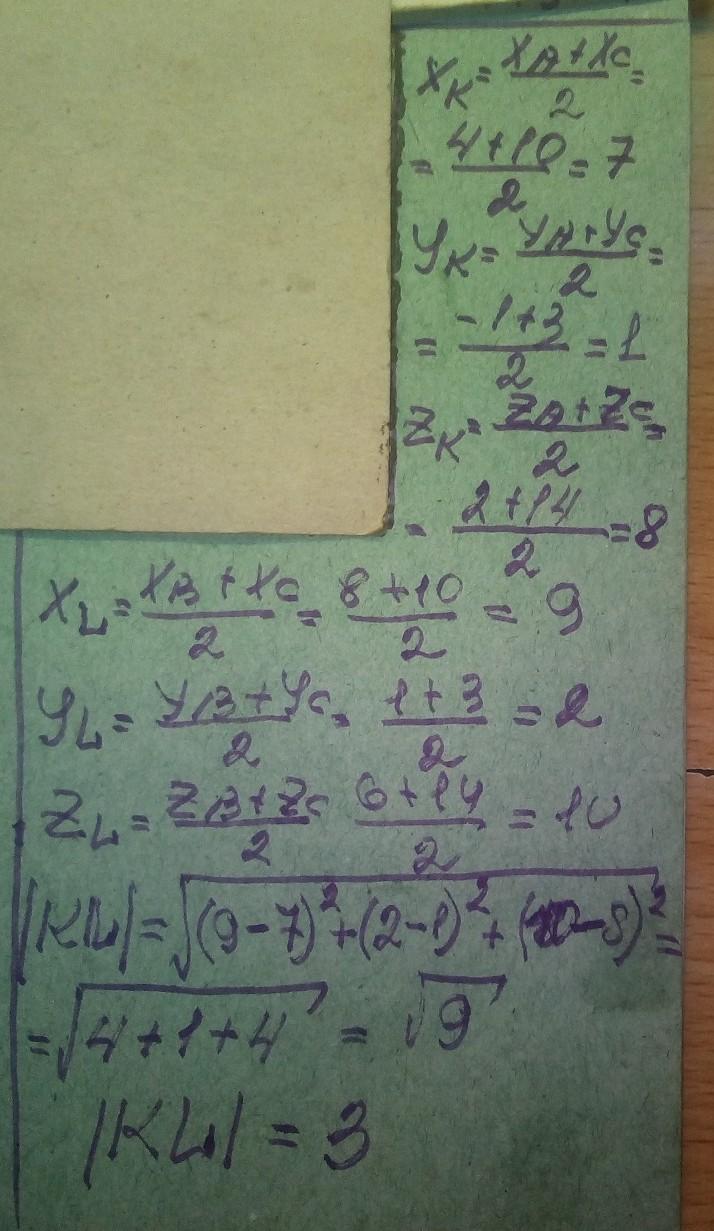 X_K = (X_A + X_C)/2 =
= (4+10)/2 = 7
Y_K = (Y_A + Y_C)/2 =
= (-1+3)/2 = 1
Z_K = (Z_A + Z_C)/2 =
= (2+14)/2 = 8
X_L = (X_B + X_C)/2 = (8+10)/2 = 9
Y_L = (Y_B + Y_C)/2 = (1+3)/2 = 2
Z_L = (Z_B + Z_C)/2 (6+14)/2 = 10
|KL| = √((9-7)² + (2-1)² + (10-8)²) =
= √(4+1+4) = √9
|KL| = 3